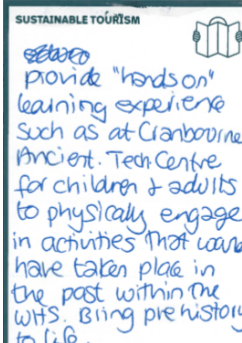 SUSTAINABLE TOURISM
provide "hands on"
learning experience
such as at Cranbourne
Ancient. Tech Centre
for children & adults
to physically engage
in activities that would
have taken place in
the past within the
WHS. Bring prehistory
to life.